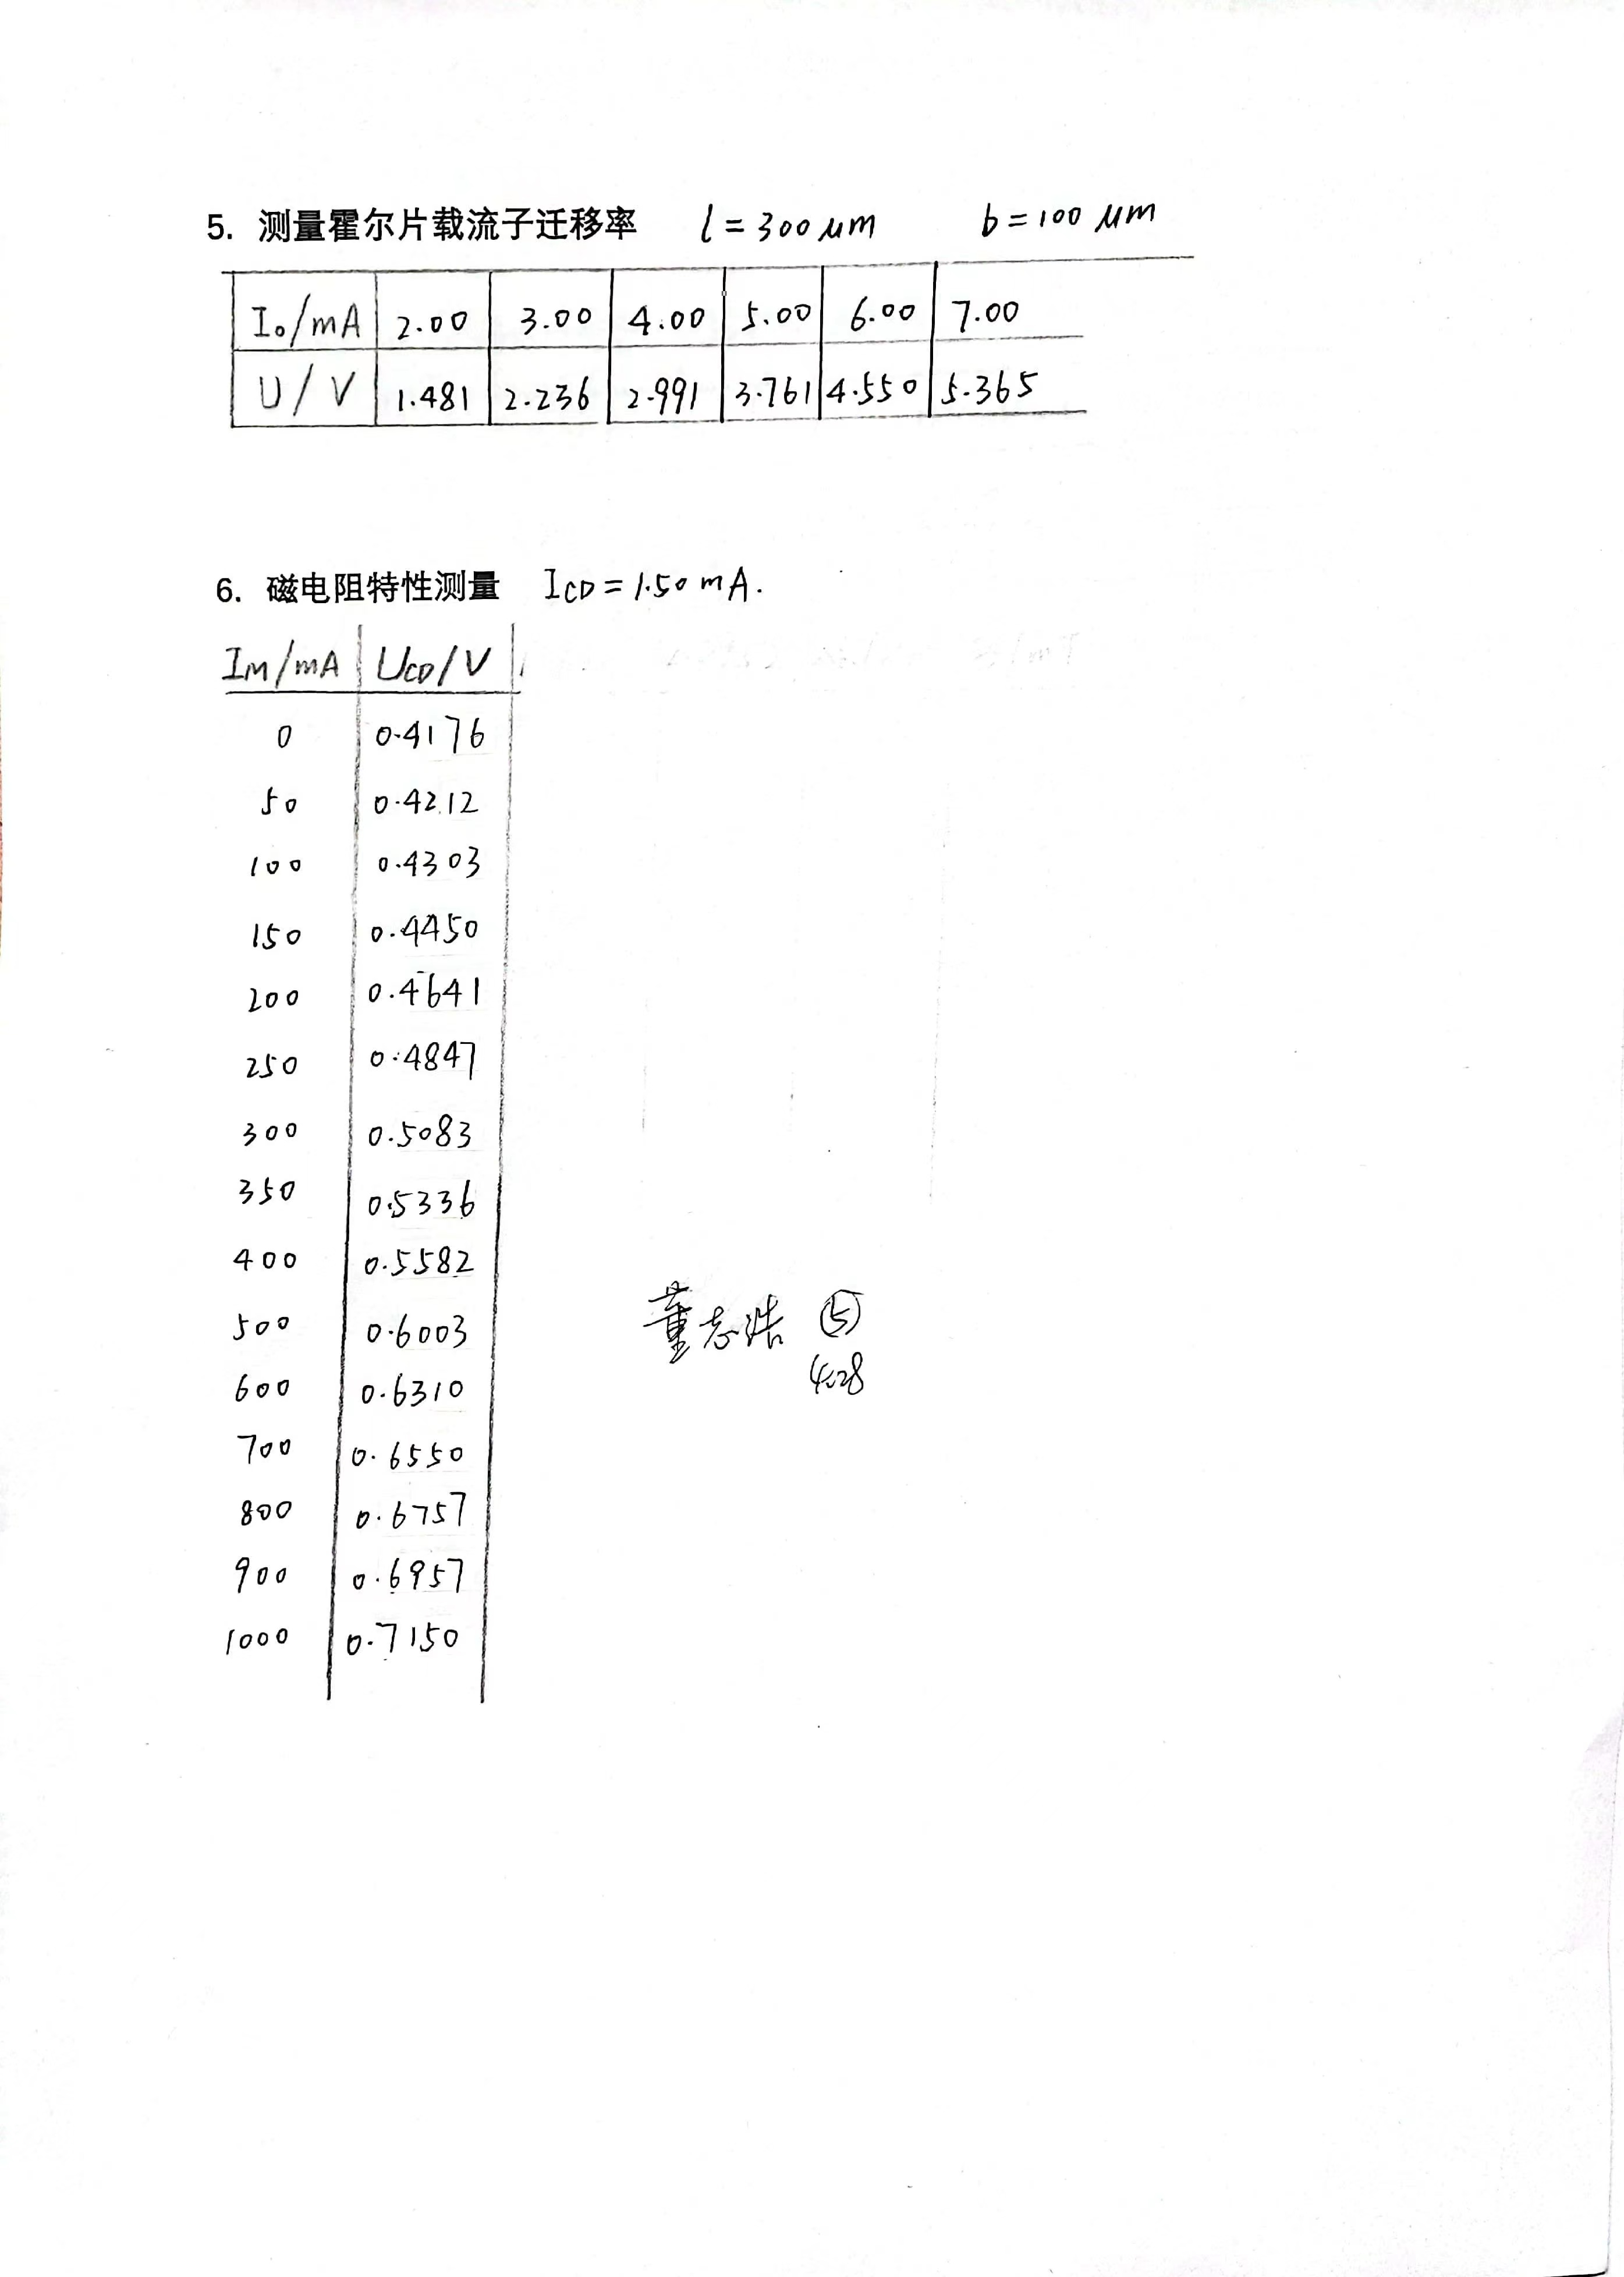 5. 测量霍尔片载流子迁移率 l = 300 μm b = 100 μm
I₀/mA 2.00 3.00 4.00 5.00 6.00 7.00
U/V 1.481 2.236 2.991 3.761 4.550 5.365
6. 磁电阻特性测量 I_CD = 1.50 mA.
I_M/mA U_CD/V
0 0.4176
50 0.4212
100 0.4303
150 0.4450
200 0.4641
250 0.4847
300 0.5083
350 0.5336
400 0.5582
500 0.6003
600 0.6310
700 0.6550
800 0.6757
900 0.6957
1000 0.7150
董志浩 ⑤
4.28